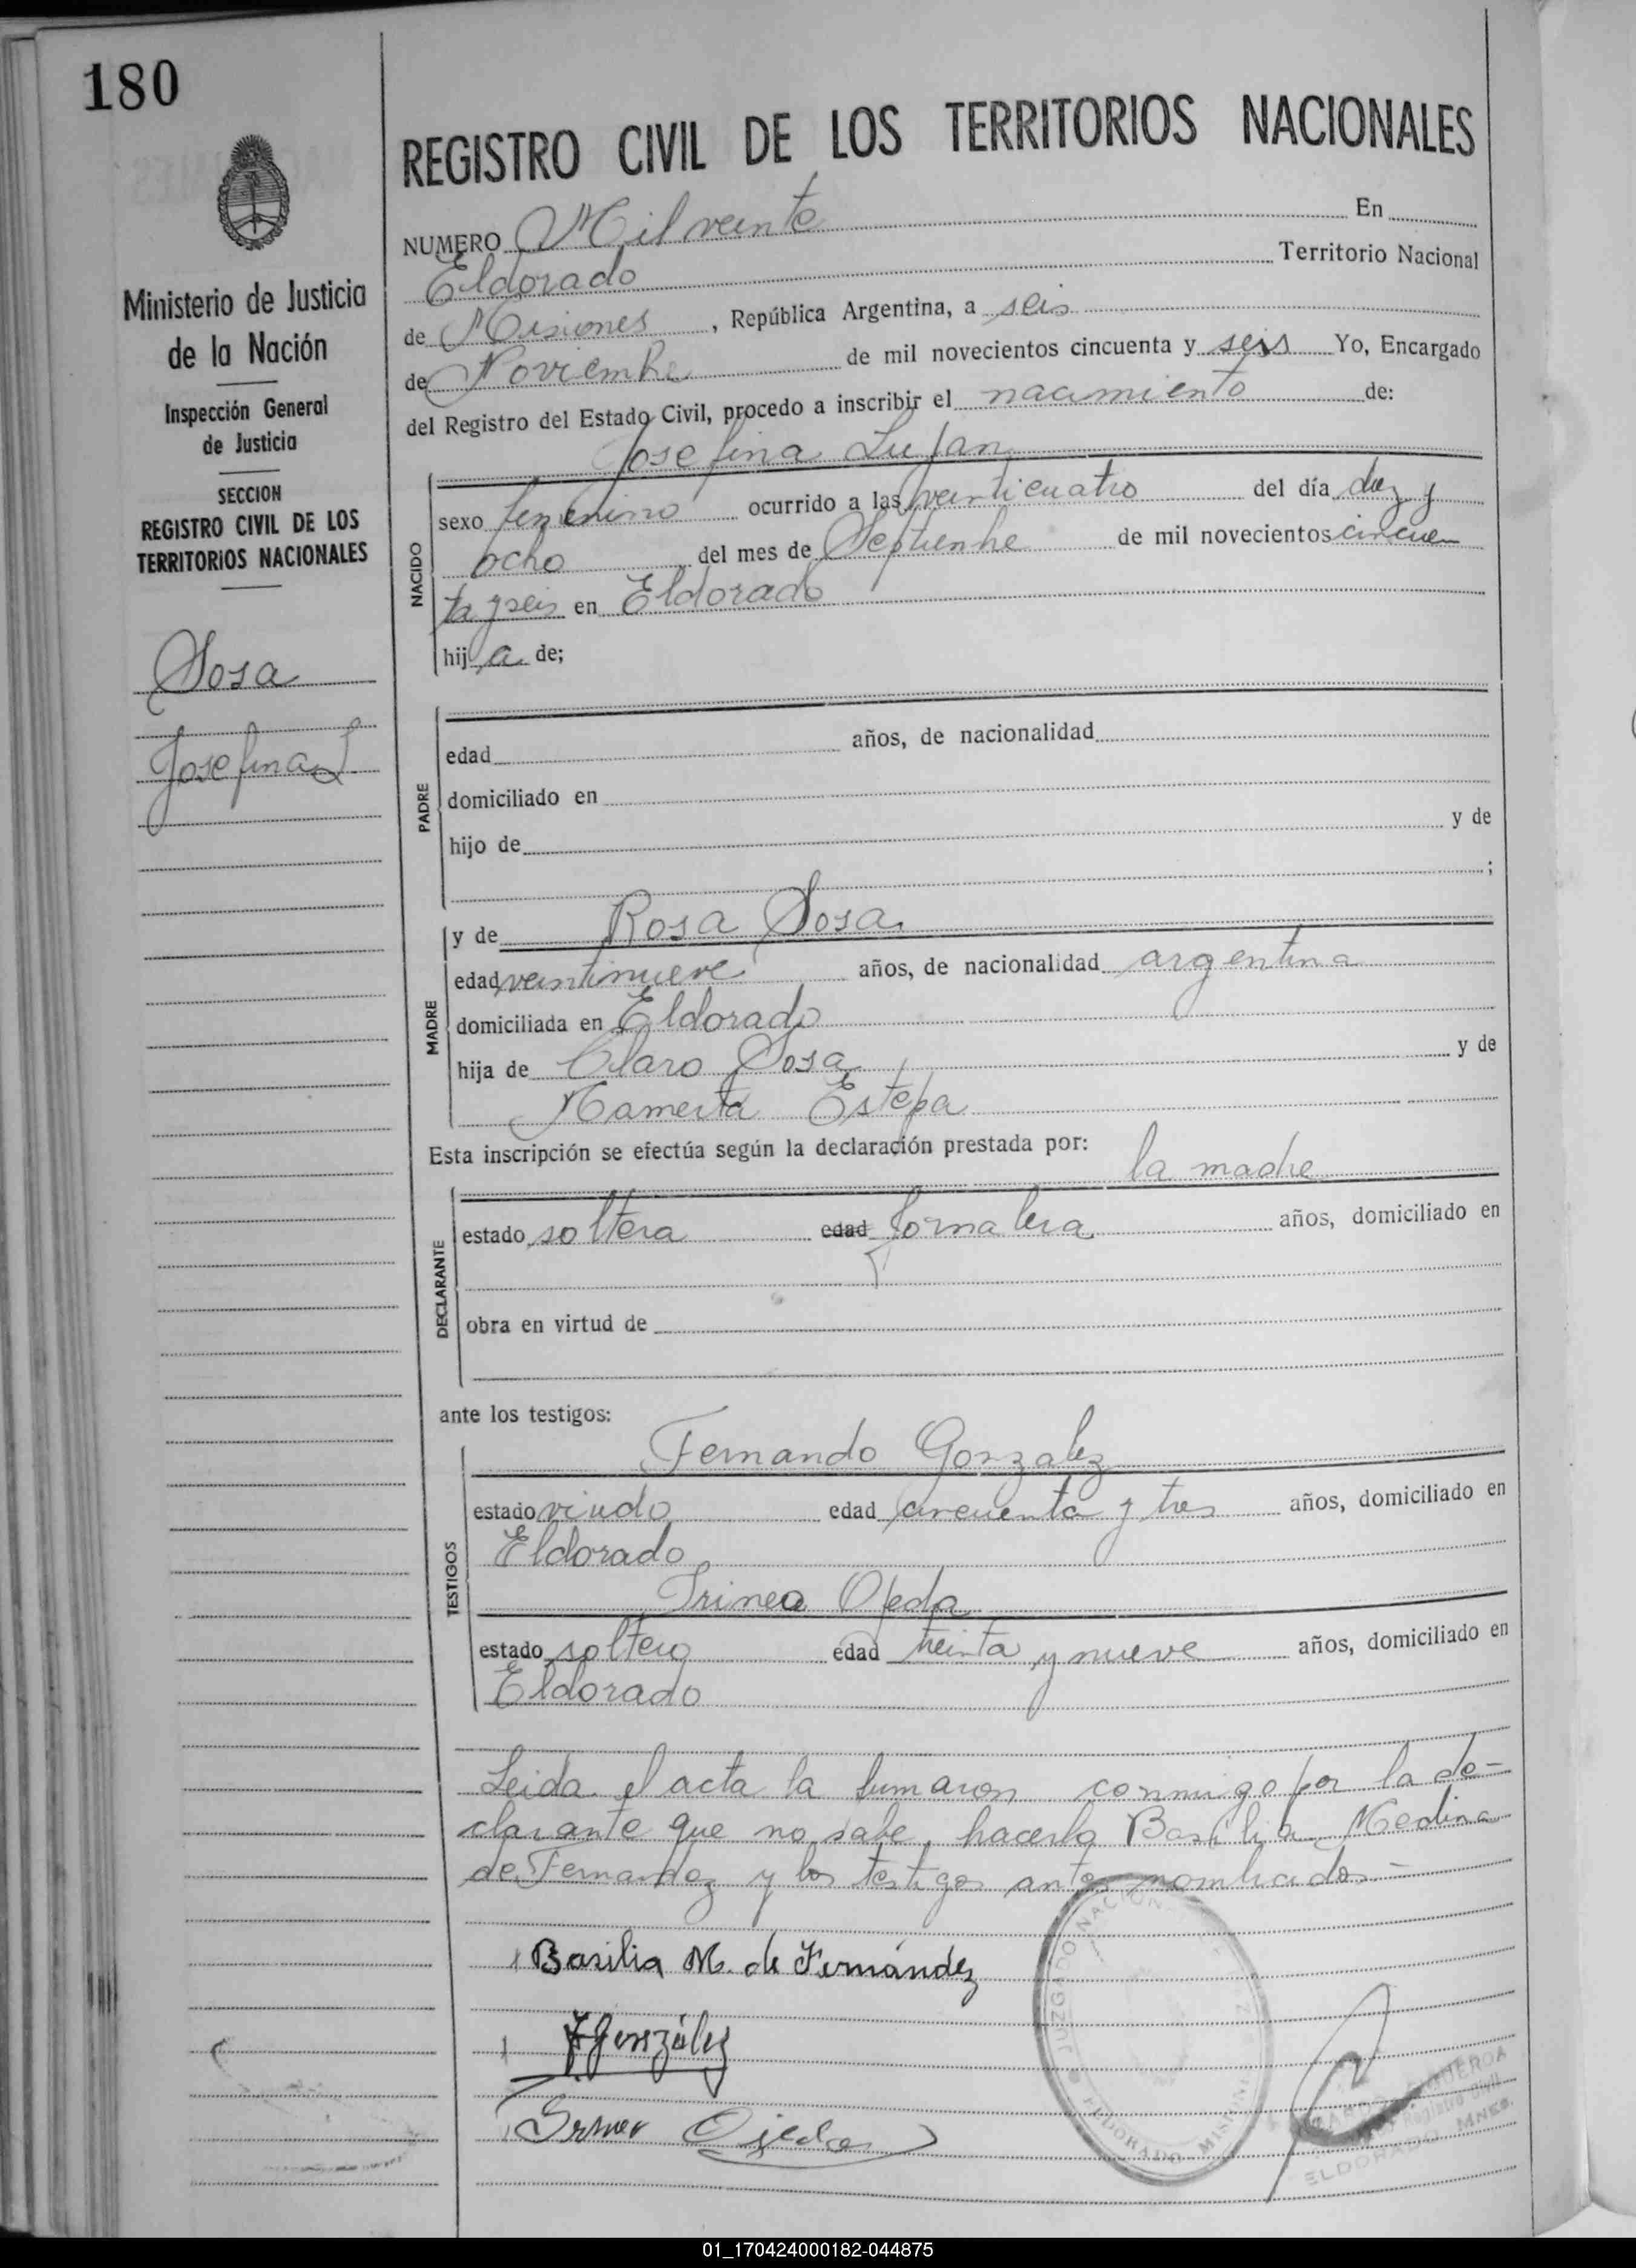 180
Ministerio de Justicia
de la Nación
Inspección General
de Justicia
SECCION
REGISTRO CIVIL DE LOS
TERRITORIOS NACIONALES
Sosa
Josefina L
REGISTRO CIVIL DE LOS TERRITORIOS NACIONALES
NUMERO Mil veinte En
Eldorado Territorio Nacional
de Misiones, República Argentina, a seis
de Noviembre de mil novecientos cincuenta y seis Yo, Encargado
del Registro del Estado Civil, procedo a inscribir el nacimiento de:
Josefina Lujan
NACIDO
sexo femenino ocurrido a las veinticuatro del día diez y
ocho del mes de Septiembre de mil novecientos cincuen
ta y seis en Eldorado
hija de;
PADRE
edad años, de nacionalidad
domiciliado en
hijo de y de
;
MADRE
y de Rosa Sosa
edad veintinueve años, de nacionalidad argentina
domiciliada en Eldorado
hija de Claro Sosa y de
Mamerta Estepa
Esta inscripción se efectúa según la declaración prestada por: la madre
DECLARANTE
estado soltera edad Jornalera años, domiciliado en
obra en virtud de
ante los testigos:
TESTIGOS
Fernando Gonzalez
estado viudo edad cincuenta y tres años, domiciliado en
Eldorado
Irineo Ojeda
estado soltero edad treinta y nueve años, domiciliado en
Eldorado
Leida el acta la firmaron conmigo por la de-
clarante que no sabe hacerlo Basilia Medina
de Fernandez y los testigos antes nombrados.-
Basilia M. de Fernández
F González
Ojeda
JUZGADO NACION
ELDORADO - MISIONES
Registro Civil
ELDORADO MNES.
01_170424000182-044875